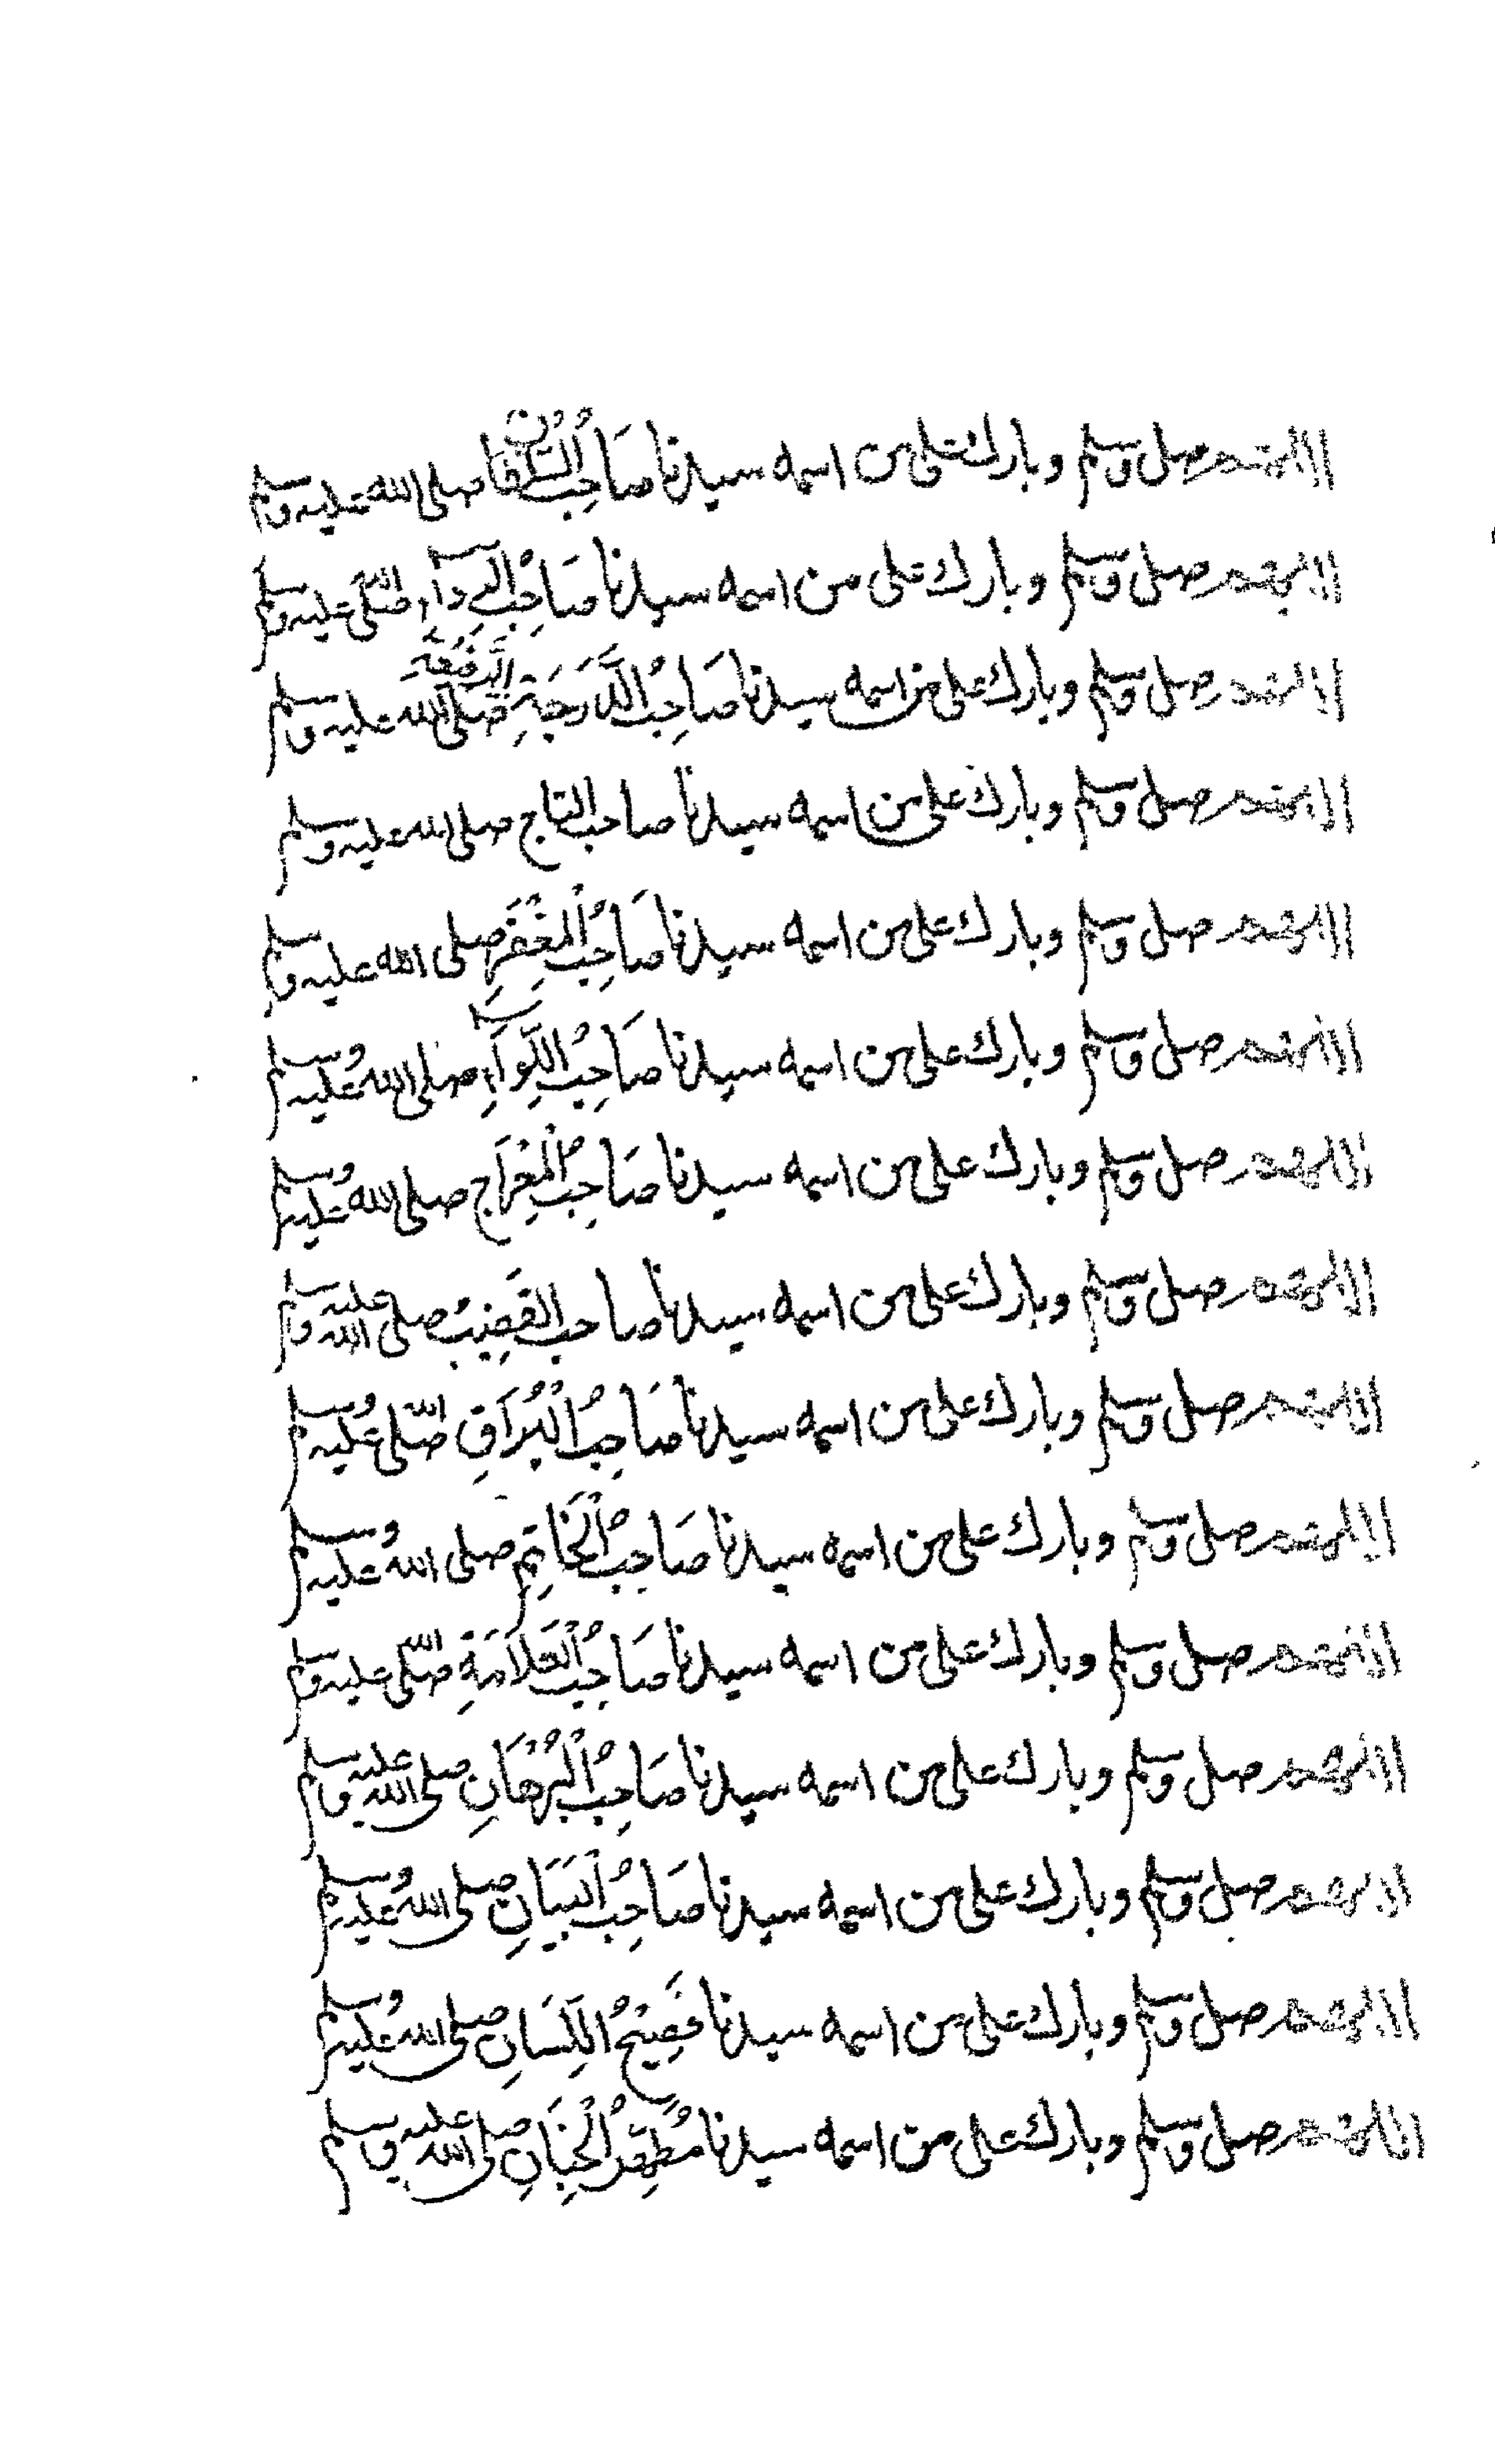 اللهم صل وسلم وبارك على من اسمه سيدنا صَاحِبُ السُّلْطَان صلى الله عليه وسلم
اللهم صل وسلم وبارك على من اسمه سيدنا صَاحِبُ الرِّدَآءِ صلى الله عليه وسلم
اللهم صل وسلم وبارك على من اسمه سيدنا صَاحِبُ الدَّرَجَةِ الرَّفِيعَةِ صلى الله عليه وسلم
اللهم صل وسلم وبارك على من اسمه سيدنا صاحب التاج صلى الله عليه وسلم
اللهم صل وسلم وبارك على من اسمه سيدنا صَاحِبُ الْمِغْفَرِ صلى الله عليه وسلم
اللهم صل وسلم وبارك على من اسمه سيدنا صَاحِبُ اللِّوَآءِ صلى الله عليه وسلم
اللهم صل وسلم وبارك على من اسمه سيدنا صَاحِبُ الْمِعْرَاجِ صلى الله عليه وسلم
اللهم صل وسلم وبارك على من اسمه سيدنا صاحب القَضِيبِ صلى الله عليه وسلم
اللهم صل وسلم وبارك على من اسمه سيدنا صَاحِبُ الْبُرَاقِ صلى الله عليه وسلم
اللهم صل وسلم وبارك على من اسمه سيدنا صَاحِبُ الْخَاتِمِ صلى الله عليه وسلم
اللهم صل وسلم وبارك على من اسمه سيدنا صَاحِبُ الْعَلَامَةِ صلى الله عليه وسلم
اللهم صل وسلم وبارك على من اسمه سيدنا صَاحِبُ الْبُرْهَانِ صلى الله عليه وسلم
اللهم صل وسلم وبارك على من اسمه سيدنا صَاحِبُ الْبَيَانِ صلى الله عليه وسلم
اللهم صل وسلم وبارك على من اسمه سيدنا فَصِيْحُ اللِّسَانِ صلى الله عليه وسلم
اللهم صل وسلم وبارك على من اسمه سيدنا مُطَهِّرُ الْجَنَانِ صلى الله عليه وسلم